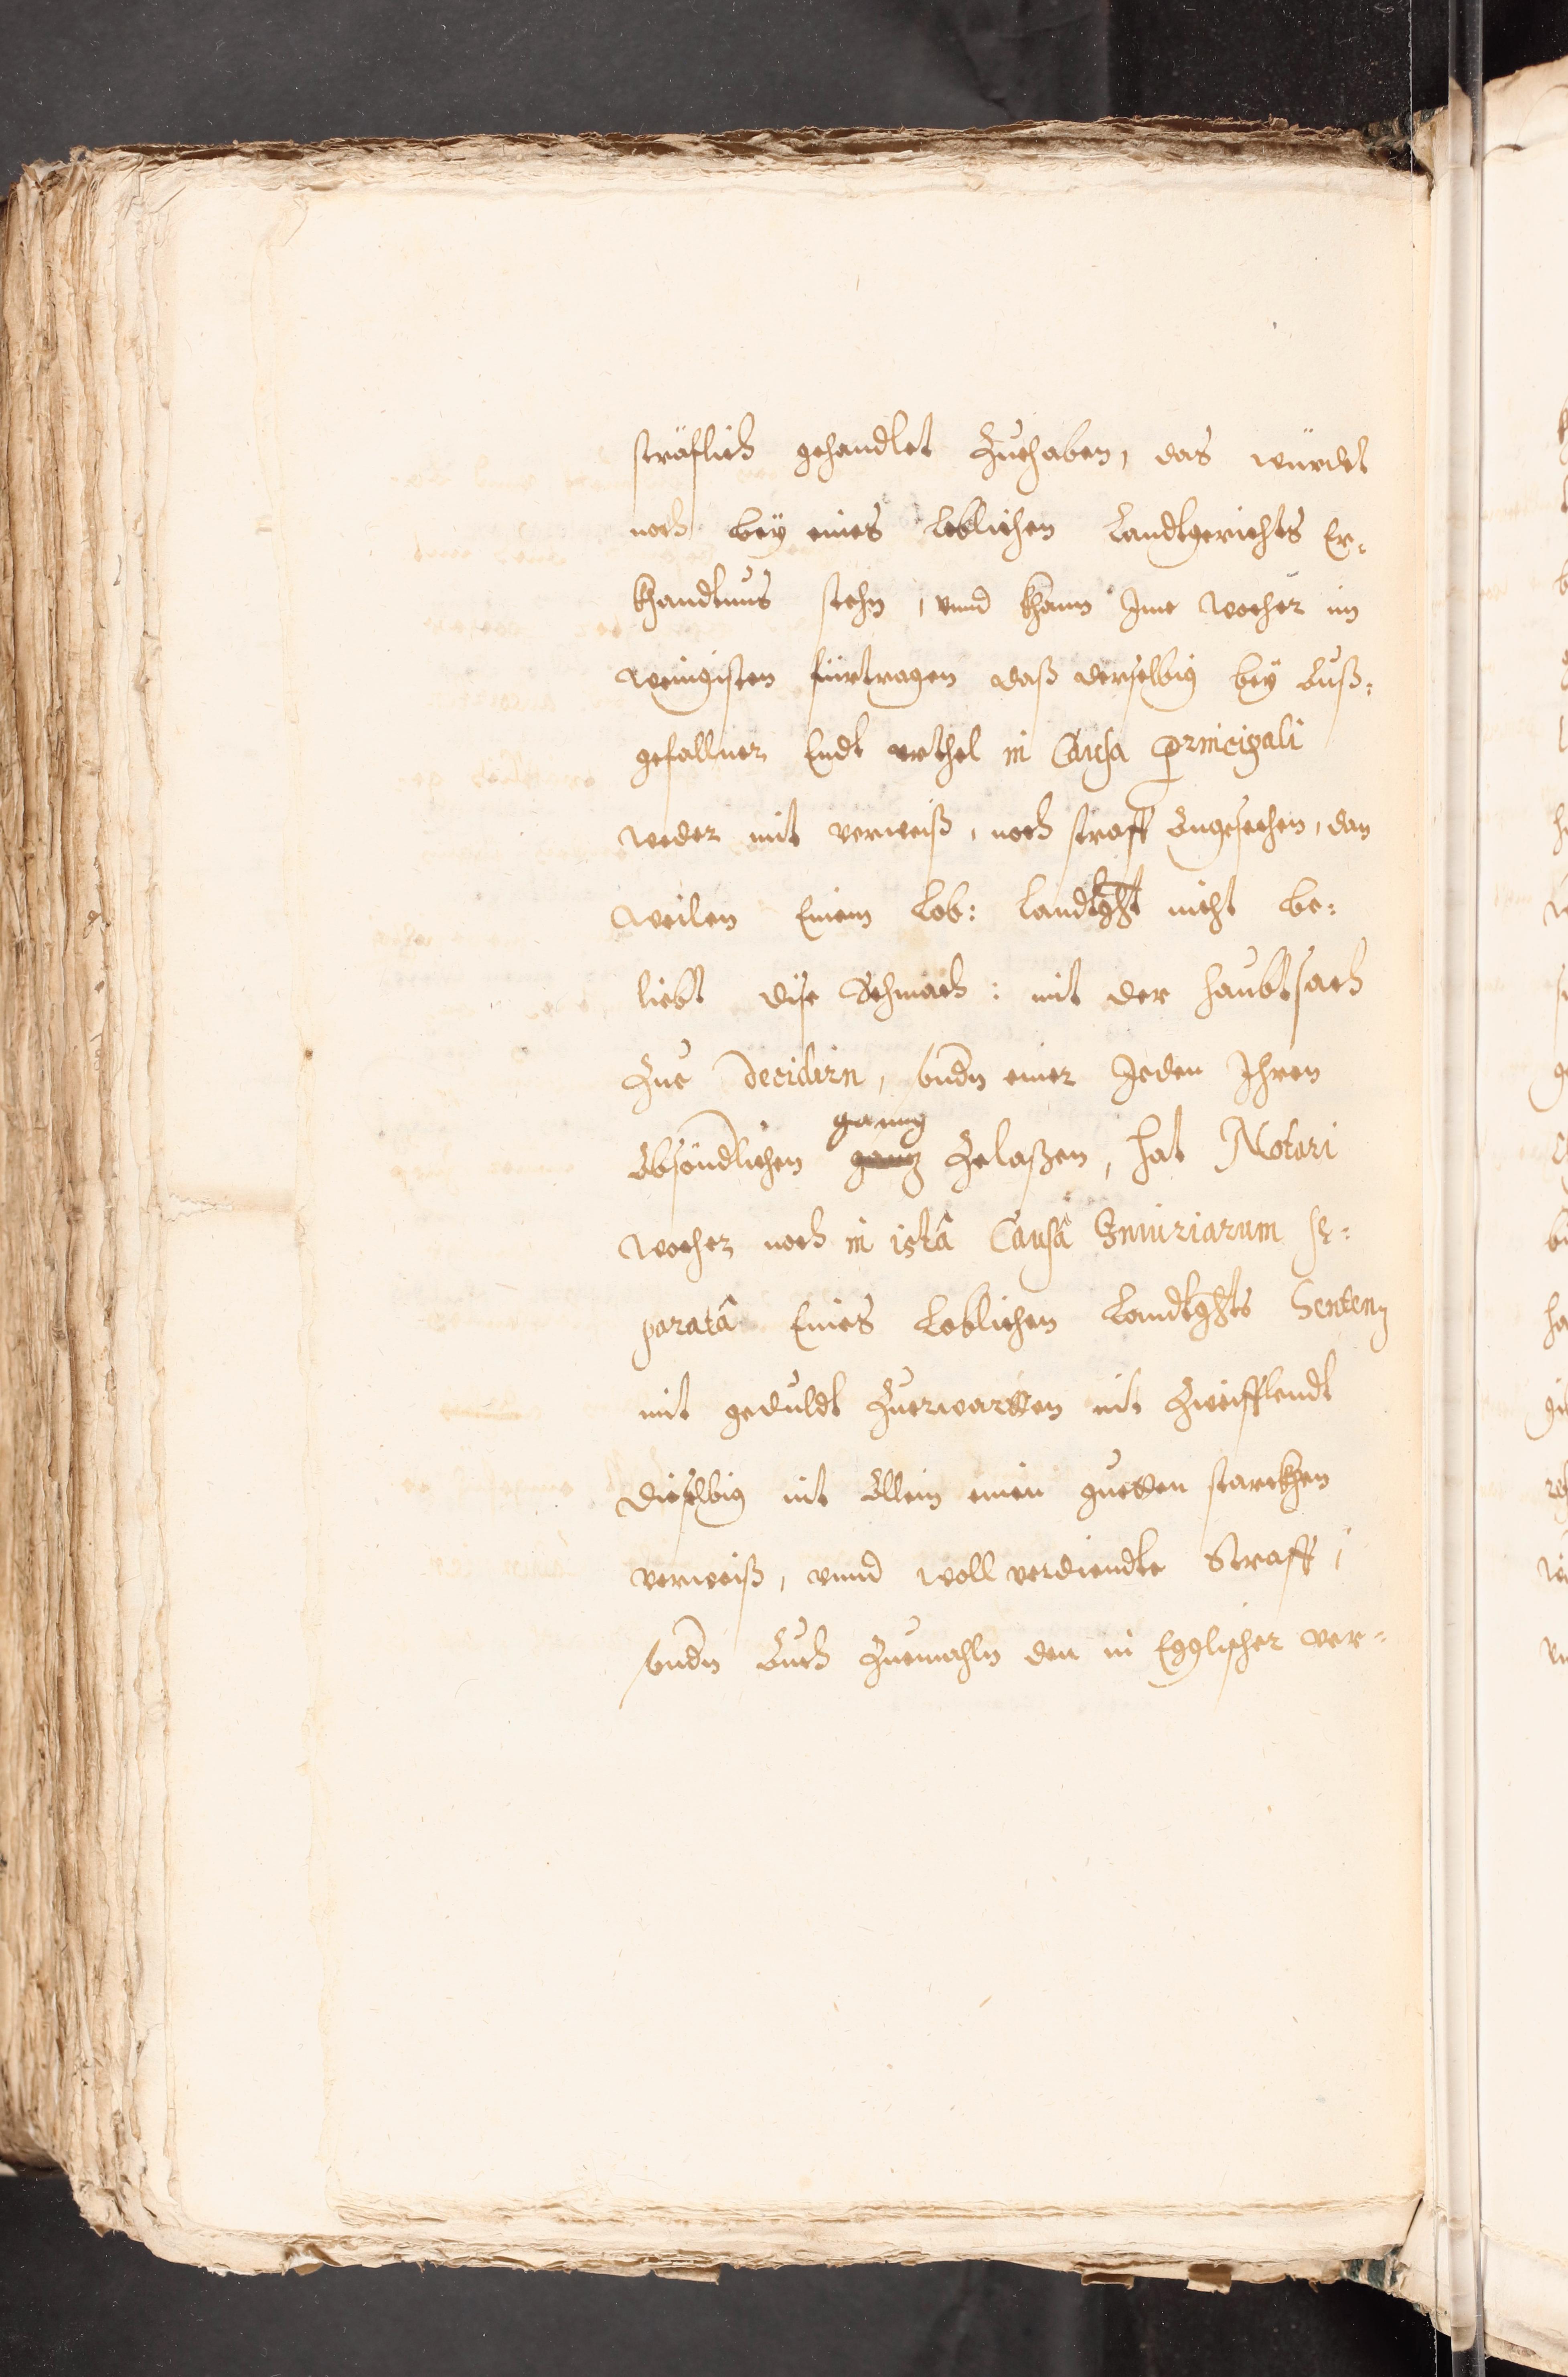 sträflich gehandlet Zuehaben, das würdet
noch bey eines loblichen Landtgerichts Er¬
khandtnus stehn, vnnd khann Ime Wocher im
wenigisten fürtragen daß derselbig bey Auß¬
gefallner Endt vrthel in Causa principali
weder mit verweiß, noch straff Angesehen, dan
weilen Einem Lob: Landtght nicht be¬
liebt dise Schmach: mit der haubtsach
Zue decidirn, sondn einer Jeden Ihren
Absöndlichen ganng Zelaßen, hat Notari
Wocher noch in istâ Causâ Iniuriarum se¬
paratâ Eines Loblichen Landtghts Sentenz
mit geduldt Zuerwartten nit Zweifflendt
dieselbig nit Allein einen guetten starckhen
verweiß, vnnd woll verdiendte Straff,
sondn Auch Zuemahln den in Egglischer ver¬